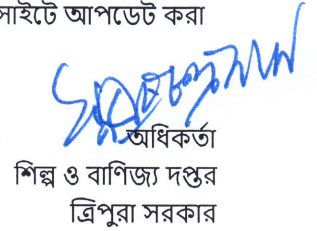 সাইটে আপডেট করা
অধিকর্তা
শিল্প ও বাণিজ্য দপ্তর
ত্রিপুরা সরকার